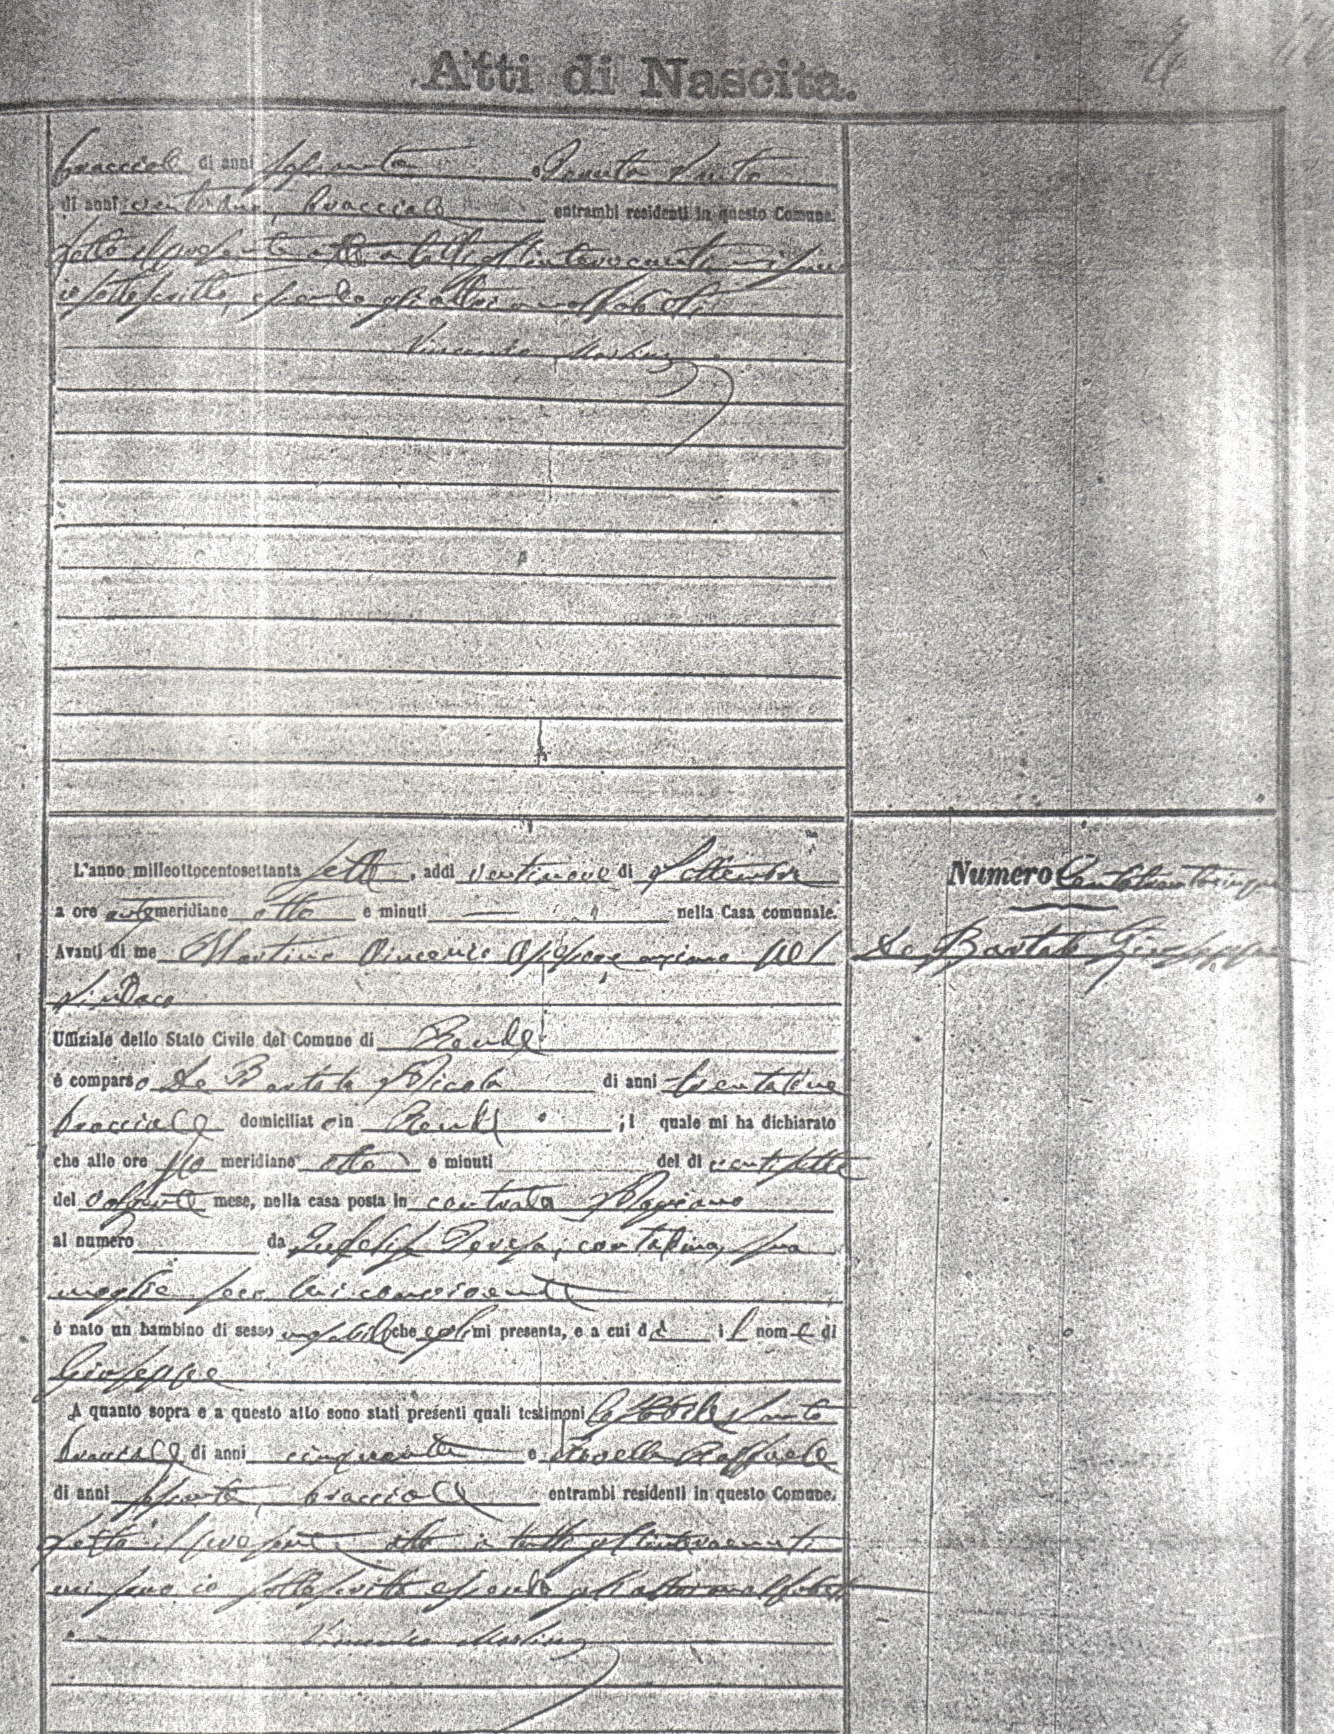 Atti di Nascita.
bracciale di anni sessanta e Santo
di anni ventidue, bracciale entrambi residenti in questo Comune.
Letto il presente atto a tutti gl'intervenuti si firma
io sottoscritto, essendo gli altri analfabeti
Vincenzo Martino
L'anno milleottocentosettanta sette, addì ventinove di Settembre
a ore antemeridiane otto e minuti nella Casa comunale.
Avanti di me Martino Vincenzo Assessore anziano pel
Sindaco
Uffiziale dello Stato Civile del Comune di Rende
è comparso De Bartolo Nicola di anni trentadue
bracciale domiciliato in Rende ; il quale mi ha dichiarato
che alle ore meridiane otto e minuti del dì ventisette
del corrente mese, nella casa posta in contrada
al numero da Teresa, contadina, sua
moglie seco lui convivente
è nato un bambino di sesso maschile che egli mi presenta, e a cui dà il nome di
Giuseppe
A quanto sopra e a questo atto sono stati presenti quali testimoni Santo
bracciale di anni cinquanta e Raffaele
di anni sessanta, bracciale entrambi residenti in questo Comune.
Letto il presente atto a tutti gl'intervenuti
mi firmo io sottoscritto essendo gli altri analfabeti
Vincenzo Martino
Numero Centotrentacinque
De Bartolo Giuseppe